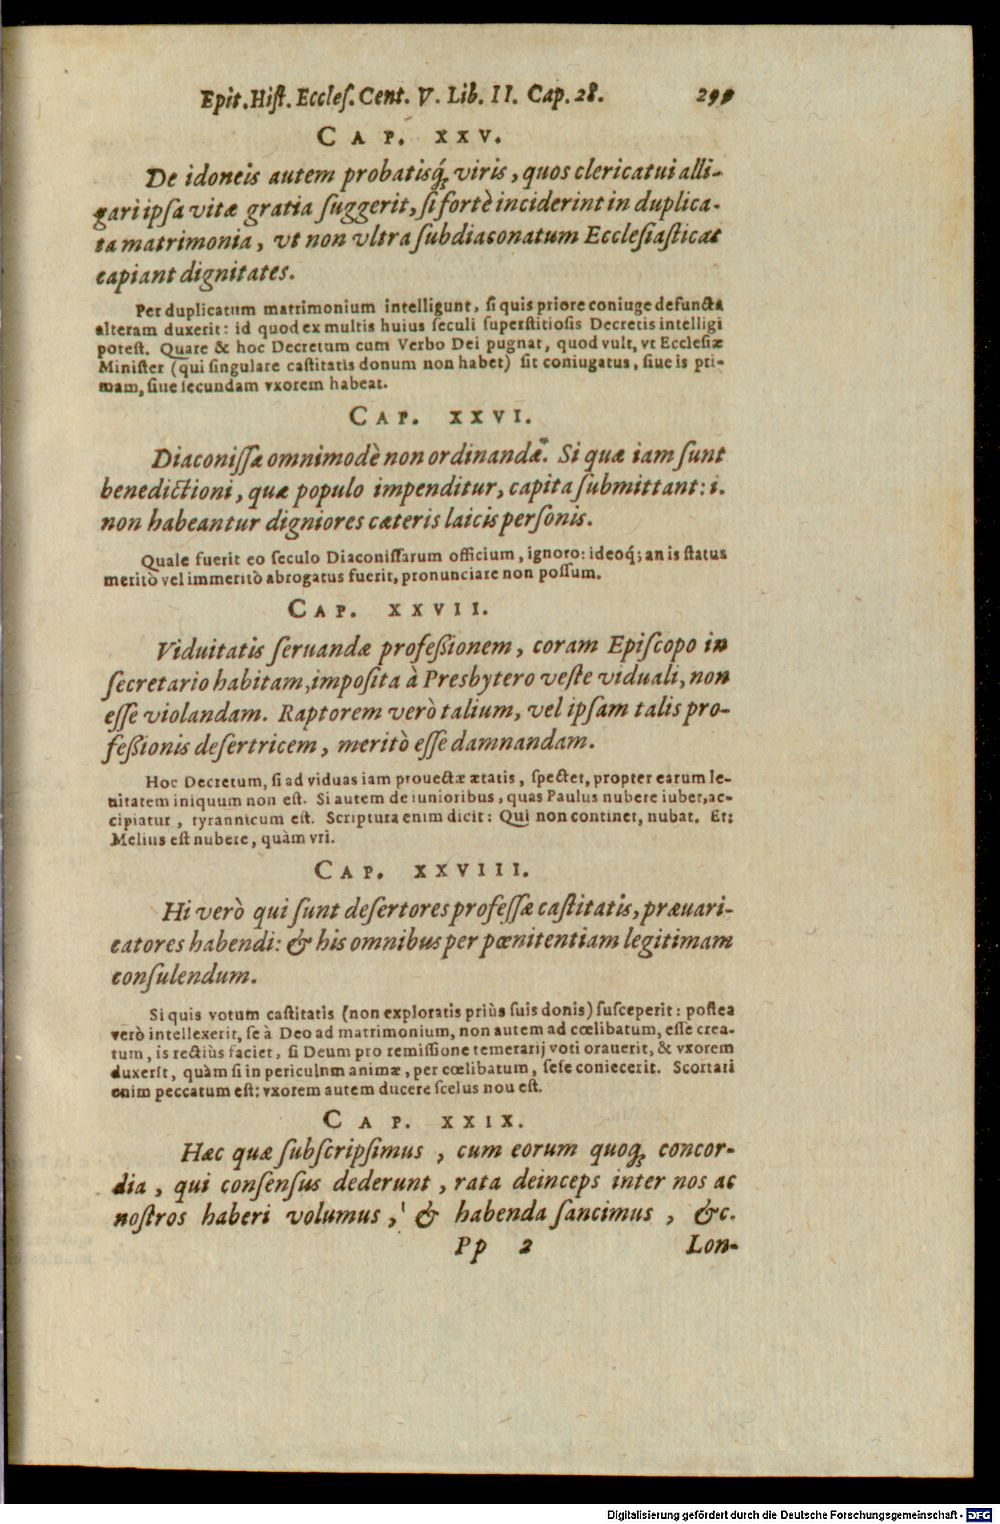 Epit. Hiſt. Eccleſ. Cent. V. Lib. II. Cap. 28. 299
CAP. XXV.
De idoneis autem probatisq́; viris, quos clericatui alli-
gari ipſa vitæ gratia ſuggerit, ſi fortè inciderint in duplica-
ta matrimonia, vt non vltra ſubdiaconatum Eccleſiaſticas
capiant dignitates.
Per duplicatum matrimonium intelligunt, ſi quis priore coniuge defuncta
alteram duxerit: id quod ex multis huius ſeculi ſuperſtitioſis Decretis intelligi
poteſt. Quare & hoc Decretum cum Verbo Dei pugnat, quod vult, vt Eccleſiæ
Miniſter (qui ſingulare caſtitatis donum non habet) ſit coniugatus, ſiue is pri-
mam, ſiue ſecundam vxorem habeat.
CAP. XXVI.
Diaconiſſæ omnimodè non ordinandæ. Si quæ iam ſunt
benedictioni, quæ populo impenditur, capita ſubmittant: i.
non habeantur digniores cæteris laicis perſonis.
Quale fuerit eo ſeculo Diaconiſſarum officium, ignoro: ideoq́; an is ſtatus
meritò vel immeritò abrogatus fuerit, pronunciare non poſſum.
CAP. XXVII.
Viduitatis ſeruandæ profeßionem, coram Epiſcopo in
ſecretario habitam, impoſita à Presbytero veſte viduali, non
eſſe violandam. Raptorem verò talium, vel ipſam talis pro-
feßionis deſertricem, meritò eſſe damnandam.
Hoc Decretum, ſi ad viduas iam prouectæ ætatis, ſpectet, propter earum le-
nitatem iniquum non eſt. Si autem de iunioribus, quas Paulus nubere iubet, ac-
cipiatur, tyrannicum eſt. Scriptura enim dicit: Qui non continet, nubat. Et:
Melius eſt nubere, quàm vri.
CAP. XXVIII.
Hi verò qui ſunt deſertores profeſſæ caſtitatis, præuari-
catores habendi: & his omnibus per pœnitentiam legitimam
conſulendum.
Si quis votum caſtitatis (non exploratis priùs ſuis donis) ſuſceperit: poſtea
verò intellexerit, ſe à Deo ad matrimonium, non autem ad cœlibatum, eſſe crea-
tum, is rectiùs faciet, ſi Deum pro remiſſione temerarij voti orauerit, & vxorem
duxerit, quàm ſi in periculnm animæ, per cœlibatum, ſeſe coniecerit. Scortari
enim peccatum eſt: vxorem autem ducere ſcelus nou eſt.
CAP. XXIX.
Hæc quæ ſubſcripſimus, cum eorum quoq; concor-
dia, qui conſenſus dederunt, rata deinceps inter nos ac
noſtros haberi volumus, & habenda ſancimus, &c.
Pp 2 Lon-
Digitalisierung gefördert durch die Deutsche Forschungsgemeinschaft - DFG